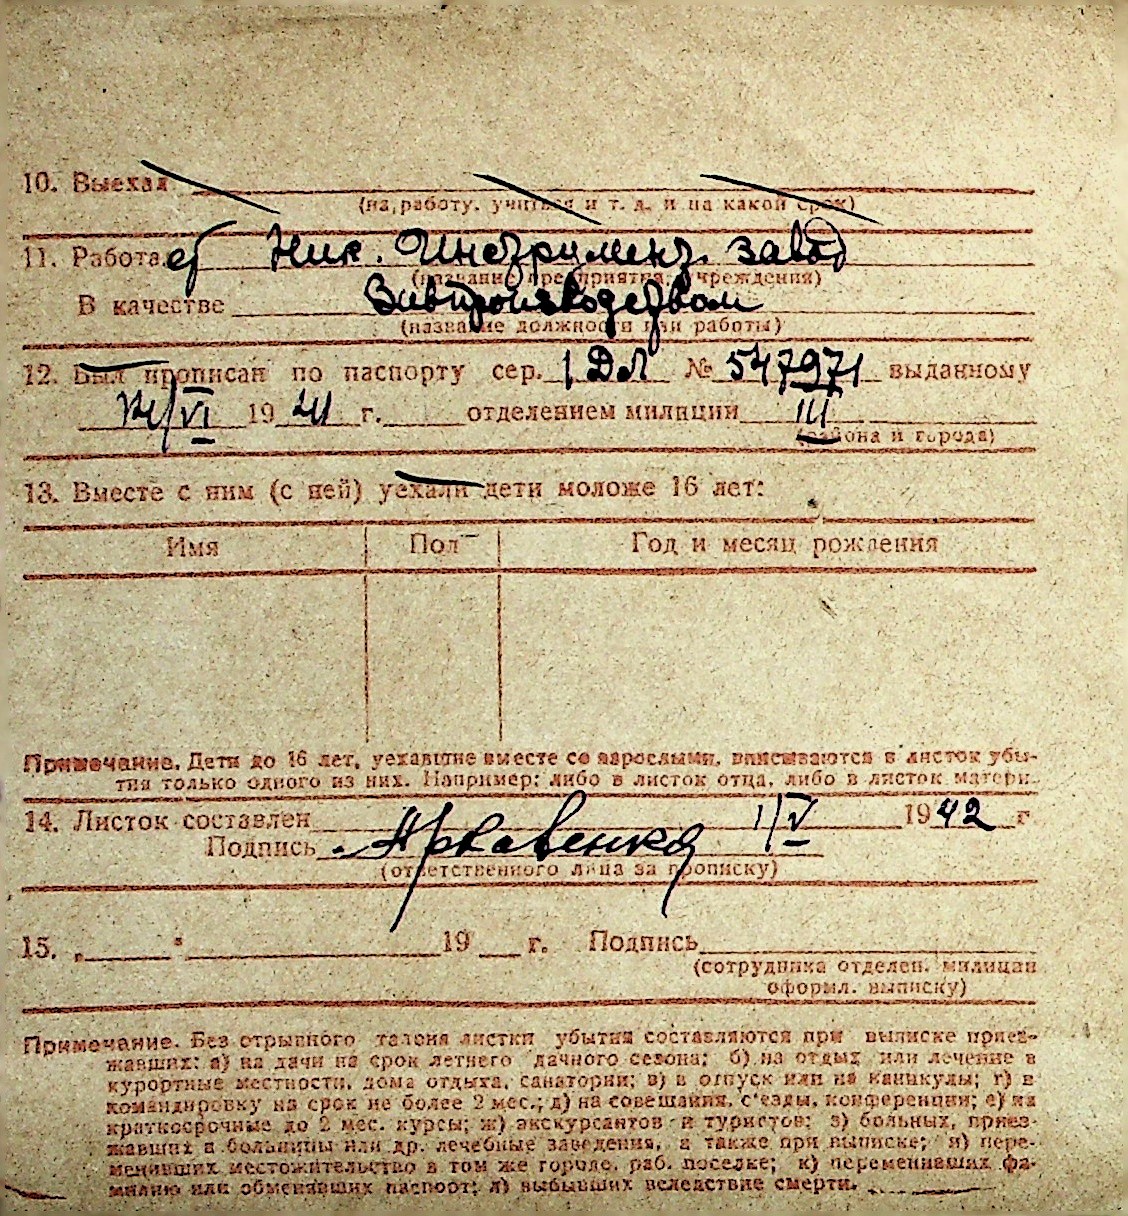 10. Выехал
(на работу, учиться и т. д. и на какой срок)
11. Работает Ник. Инструмент. завод
(название предприятия, учреждения)
В качестве Завпроизводством
(название должности или работы)
12. Был прописан по паспорту сер. 1 ДЛ № 547971 выданному
/VI 1941 г. отделением милиции III
(района и города)
13. Вместе с ним (с ней) уехали дети моложе 16 лет:
Имя Пол Год и месяц рождения
Примечание. Дети до 16 лет, уехавшие вместе со взрослыми, вписываются в листок убы-
тия только одного из них. Например: либо в листок отца, либо в листок матери.
14. Листок составлен 1/V 1942 г.
Подпись
(ответственного лица за прописку)
15. „ “ 19 г. Подпись
(сотрудника отделен. милиции
оформл. выписку)
Примечание. Без отрывного талона листки убытия составляются при выписке приез-
жавших: а) на дачи на срок летнего дачного сезона; б) на отдых или лечение в
курортные местности, дома отдыха, санатории; в) в отпуск или на каникулы; г) в
командировку на срок не более 2 мес.; д) на совещания, с'езды, конференции; е) на
краткосрочные до 2 мес. курсы; ж) экскурсантов и туристов; з) больных, приез-
жавших в больницы или др. лечебные заведения, а также при выписке; и) пере-
менивших местожительство в том же городе, раб. поселке; к) переменивших фа-
милию или обменявших паспорт; л) выбывших вследствие смерти.